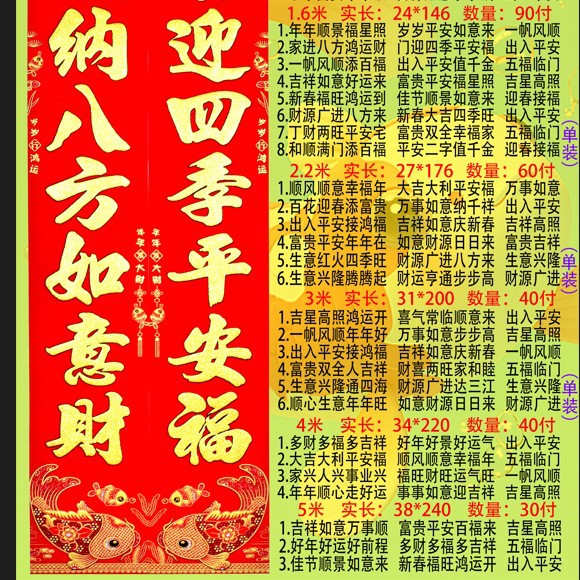 迎四季平安福
纳八方如意財
1.6米 实长：24*146 数量：90付
1.年年顺景福星照 岁岁平安如意来 一帆风顺
2.家进八方鸿运财 门迎四季平安福 出入平安
3.一帆风顺添百福 出入平安值千金 五福临门
4.吉祥如意好运来 富贵平安福星照 吉星高照
5.新春福旺鸿运到 佳节顺景如意来 迎春接福
6.财源广进八方来 新春大吉四季旺 出入平安
7.丁财两旺平安宅 富贵双全幸福家 五福临门
8.和顺满门添百福 平安二字值千金 迎春接福
(单装)
2.2米 实长：27*176 数量：60付
1.顺风顺意幸福年 大吉大利平安福 万事如意
2.百花迎春添富贵 万事如意纳千祥 出入平安
3.出入平安接鸿福 吉祥如意庆新春 吉祥高照
4.富贵平安年年在 如意财源日日来 富贵吉祥
5.生意红火四季旺 财源广进八方来 生意兴隆
6.生意兴隆腾腾起 财运亨通步步高 财源广进
(单装)
3米 实长：31*200 数量：40付
1.吉星高照鸿运开 喜气常临顺意来 出入平安
2.一帆风顺年年好 万事如意步步高 吉星高照
3.出入平安接鸿福 吉祥如意庆新春 一帆风顺
4.富贵双全人吉祥 财喜两旺家和睦 五福临门
5.生意兴隆通四海 财源广进达三江 生意兴隆
6.顺心生意年年旺 如意财源日日来 财源广进
(单装)
4米 实长：34*220 数量：40付
1.多财多福多吉祥 好年好景好运气 出入平安
2.大吉大利平安福 顺风顺意幸福年 五福临门
3.家兴人兴事业兴 福旺财旺运气旺 一帆风顺
4.年年顺心走好运 事事如意迎吉祥 吉星高照
5米 实长：38*240 数量：30付
1.吉祥如意万事顺 富贵平安百福来 吉星高照
2.好年好运好前程 多财多福多吉祥 五福临门
3.佳节顺景如意来 新春福旺鸿运开 出入平安